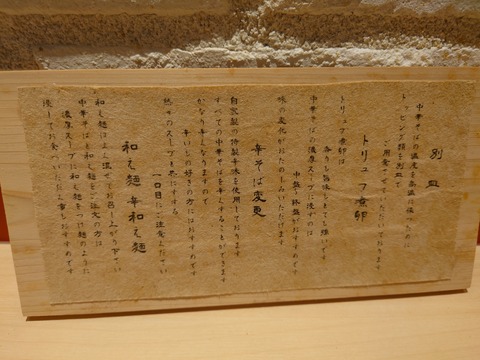 別皿
中華そばの温度を高温に保つために
トッピング類を別皿で
ご用意させていただいております
トリュフ煮卵
トリュフ煮卵は
香りも旨味もとても強いです
中華そばの濃厚スープに浸すのは
中盤〜終盤がおすすめです
味の変化がおたのしみいただけます
辛そば変更
自家製の特製辛味を使用しております
すべての中華そばを辛くすることができます
かなり辛くなりますので
辛いもの好きの方にはおすすめです
熱々のスープと共にすする
一口目にご注意ください
和え麺 辛和え麺
和え麺はよく混ぜてお召し上がり下さい
中華そばと和え麺をご注文の方は
濃厚スープに和え麺をつけ麺のように
浸してお食べいただく事もおすすめです